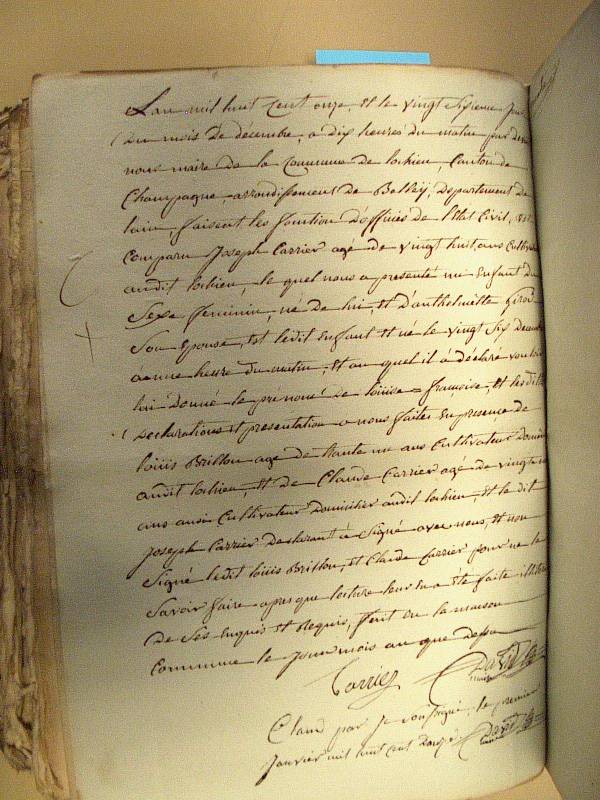 L'an mil huit Cent onze, et le vingt Sixieme Jour
Du mois de décembre, a dix heures du matin par devant
nous maire de la Commune de lochieu, Canton de
Champagne, arrondissement de Belley, Departement de
lain, faisent les fonction d'officiés de l'Etat Civil,
Comparu Joseph Carrier agé de vingt huit ans Cultivateur
audit lochieu, le quel nous a presenté un Enfant du
Sexe feminin, né de lui, et D'anthelmette
Son Epouse, ledit Enfant né le vingt Six Decembre
a une heure du matin, et au quel il a déclaré vouloir
lui Donné le prenome de loüise françoise, et lesdittes
Declarations et presentation a nous faites En presence de
loüis Brillon agé de trante un ans Cultivateur
audit lochieu, et de Claude Carrier agé de vingt
ans aussi Cultivateur Domicilier audit lochieu, et le dit
Joseph Carrier Declarant a Signé avec nous, et non
Signé ledit loüis Brillon, et Claude Carrier pour ne le
Savoir faire apres que lecture leur en a été faite
De Ses Enquis et Requis, fait en la maison
Commune le Jour mois an que dessu
Carrier David
Clauo par Je Soussigné, le premier
Janvier mil huit cent Douze David